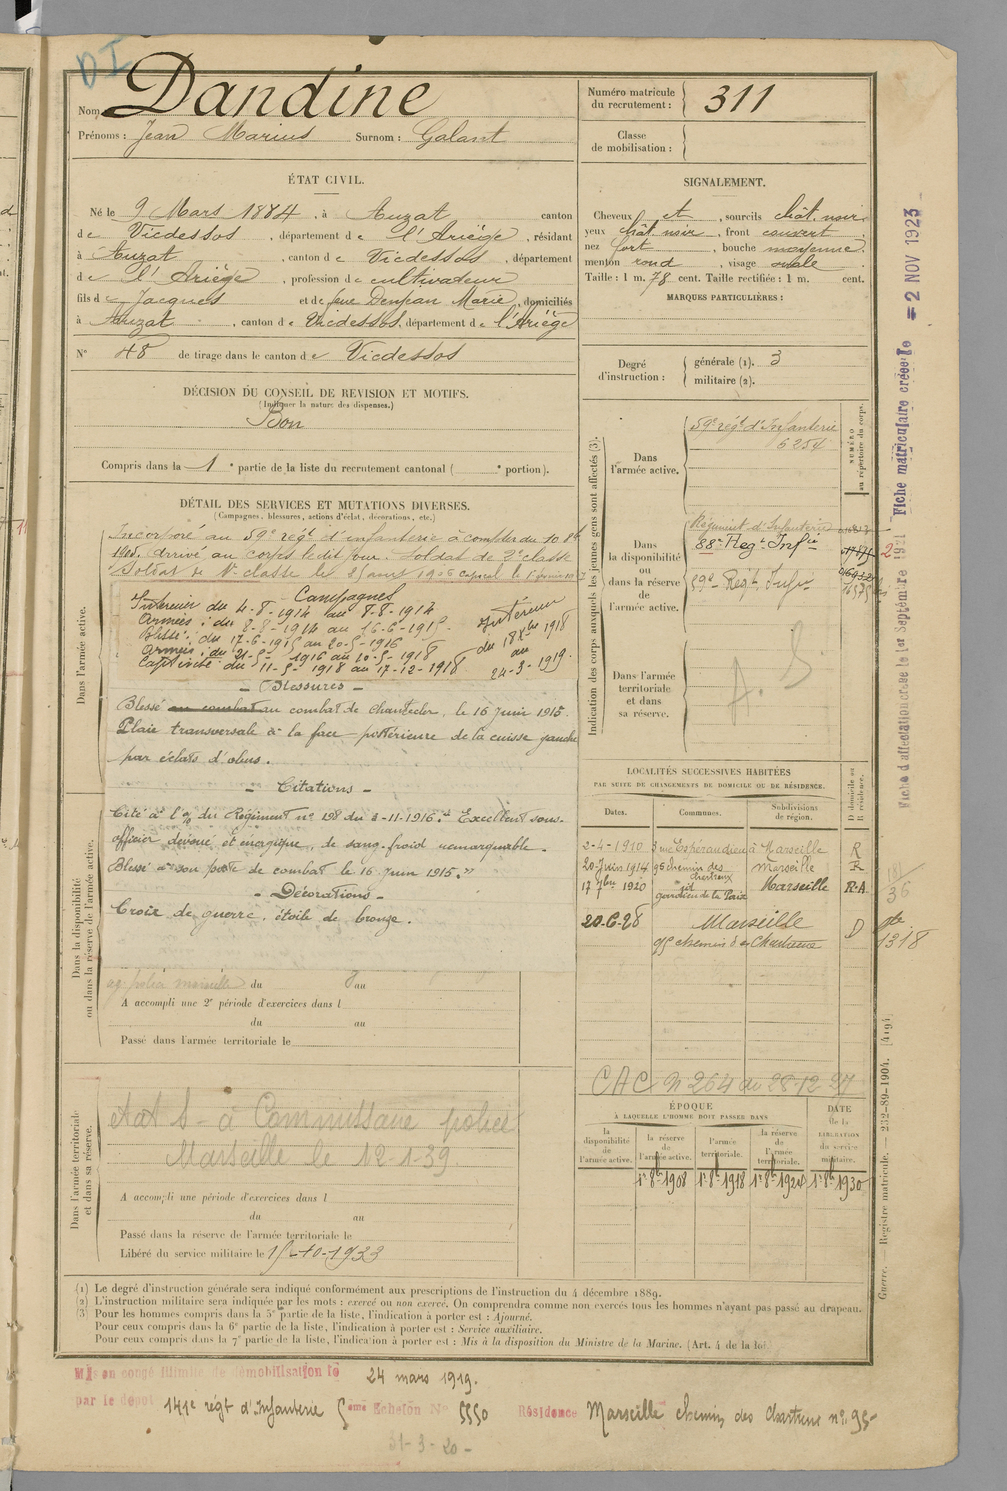 DI
Nom Dandine
Prénoms : Jean Marius Surnom : Galant
Numéro matricule du recrutement : 311
Classe de mobilisation :
ÉTAT CIVIL.
Né le 9 Mars 1884, à Auzat canton
de Vicdessos, département de l'Ariège, résidant
à Auzat, canton de Vicdessos, département
de l'Ariège, profession de cultivateur
fils de Jacques et de feue Denjean Marie, domiciliés
à Auzat, canton de Vicdessos, département de l'Ariège
N° 48 de tirage dans le canton de Vicdessos
SIGNALEMENT.
Cheveux et, sourcils chât. noir
yeux chât. noir, front couvert
nez fort, bouche moyenne
menton rond, visage ovale
Taille : 1 m. 78 cent. Taille rectifiée : 1 m. cent.
MARQUES PARTICULIÈRES :
Degré d'instruction : générale (1). 3
militaire (2).
DÉCISION DU CONSEIL DE REVISION ET MOTIFS.
(Indiquer la nature des dispenses.)
Bon
Compris dans la 1e partie de la liste du recrutement cantonal ( e portion).
DÉTAIL DES SERVICES ET MUTATIONS DIVERSES.
(Campagnes, blessures, actions d'éclat, décorations, etc.)
Dans l'armée active.
Incorporé au 59e régt d'infanterie à compter du 10 8bre
1905. Arrivé au corps le dit jour. Soldat de 2e classe
Soldat de 1e classe le
Campagnes
Intérieur du 4-8-1914 au 8-8-1914
Armées : du 8-8-1914 au 16-6-1915.
Blessé : du 17-6-1915 au 20-5-1916
Armées : du 21-5-1916 au 10-5-1918
Captivité du 11-5-1918 au 17-12-1918
Intérieur
du 18 Xbre 1918
au
24-3-1919.
- Blessures -
Blessé au combat au combat de Chantecler, le 16 Juin 1915.
Plaie transversale à la face postérieure de la cuisse gauche
par éclats d'obus.
- Citations -
Cité à l'O/ du Régiment n° 198 du 3-11-1916. "Excellent sous-
officier dévoué et énergique, de sang-froid remarquable.
Blessé à son poste de combat le 16 Juin 1915."
- Décorations -
Croix de guerre, étoile de bronze.
Dans la disponibilité ou dans la réserve de l'armée active.
du au
A accompli une 2e période d'exercices dans l
du au
Passé dans l'armée territoriale le
Dans l'armée territoriale et dans sa réserve.
à Commissaire police
Marseille le 12-1-39
A accompli une période d'exercices dans l
du au
Passé dans la réserve de l'armée territoriale le
Libéré du service militaire le 15-10-1933
Indication des corps auxquels les jeunes gens sont affectés (3).
NUMÉRO au répertoire du corps.
Dans l'armée active.
59e régt d'Infanterie
6254
Dans la disponibilité ou dans la réserve de l'armée active.
Régiment d'Infanterie
88e Régt Infie
59e Régt Infie
Dans l'armée territoriale et dans sa réserve.
A. S
LOCALITÉS SUCCESSIVES HABITÉES
PAR SUITE DE CHANGEMENTS DE DOMICILE OU DE RÉSIDENCE.
Dates. Communes. Subdivisions de région. D domicile ou R résidence.
2-4-1910 3 rue Espérandieu à Marseille R
20 Juin 1914 95 chemin des chartreux Marseille R
17 7bre 1920 id gardien de la Paix Marseille R.A
20-6-28 Marseille D
95 chemin des Chartreux
181
36
1318
CAC N 264 du 28-12 27
ÉPOQUE
À LAQUELLE L'HOMME DOIT PASSER DANS
DATE de la LIBÉRATION du service militaire.
la disponibilité de l'armée active.
la réserve de l'armée active. 1er 8b 1908
l'armée territoriale. 1er 8b 1918
la réserve de l'armée territoriale. 1er 8b 1924
1er 8b 1930
(1) Le degré d'instruction générale sera indiqué conformément aux prescriptions de l'instruction du 4 décembre 1889.
(2) L'instruction militaire sera indiquée par les mots : exercé ou non exercé. On comprendra comme non exercés tous les hommes n'ayant pas passé au drapeau.
(3) Pour les hommes compris dans la 5e partie de la liste, l'indication à porter est : Ajourné.
Pour ceux compris dans la 6e partie de la liste, l'indication à porter est : Service auxiliaire.
Pour ceux compris dans la 7e partie de la liste, l'indication à porter est : Mis à la disposition du Ministre de la Marine. (Art. 4 de la loi
Fiche matriculaire créée le = 2 NOV 1923
Fiche d'affectation créée le 1er Septembre 1921
Guerre. — Registre matricule. — 232-89-1904. [419]
Mis en congé illimité de démobilisation le 24 mars 1919.
par le dépôt 141e régt d'Infanterie 5ème Echelon N° 5550 Résidence Marseille chemin des Chartreux n° 95-
31-3-20-